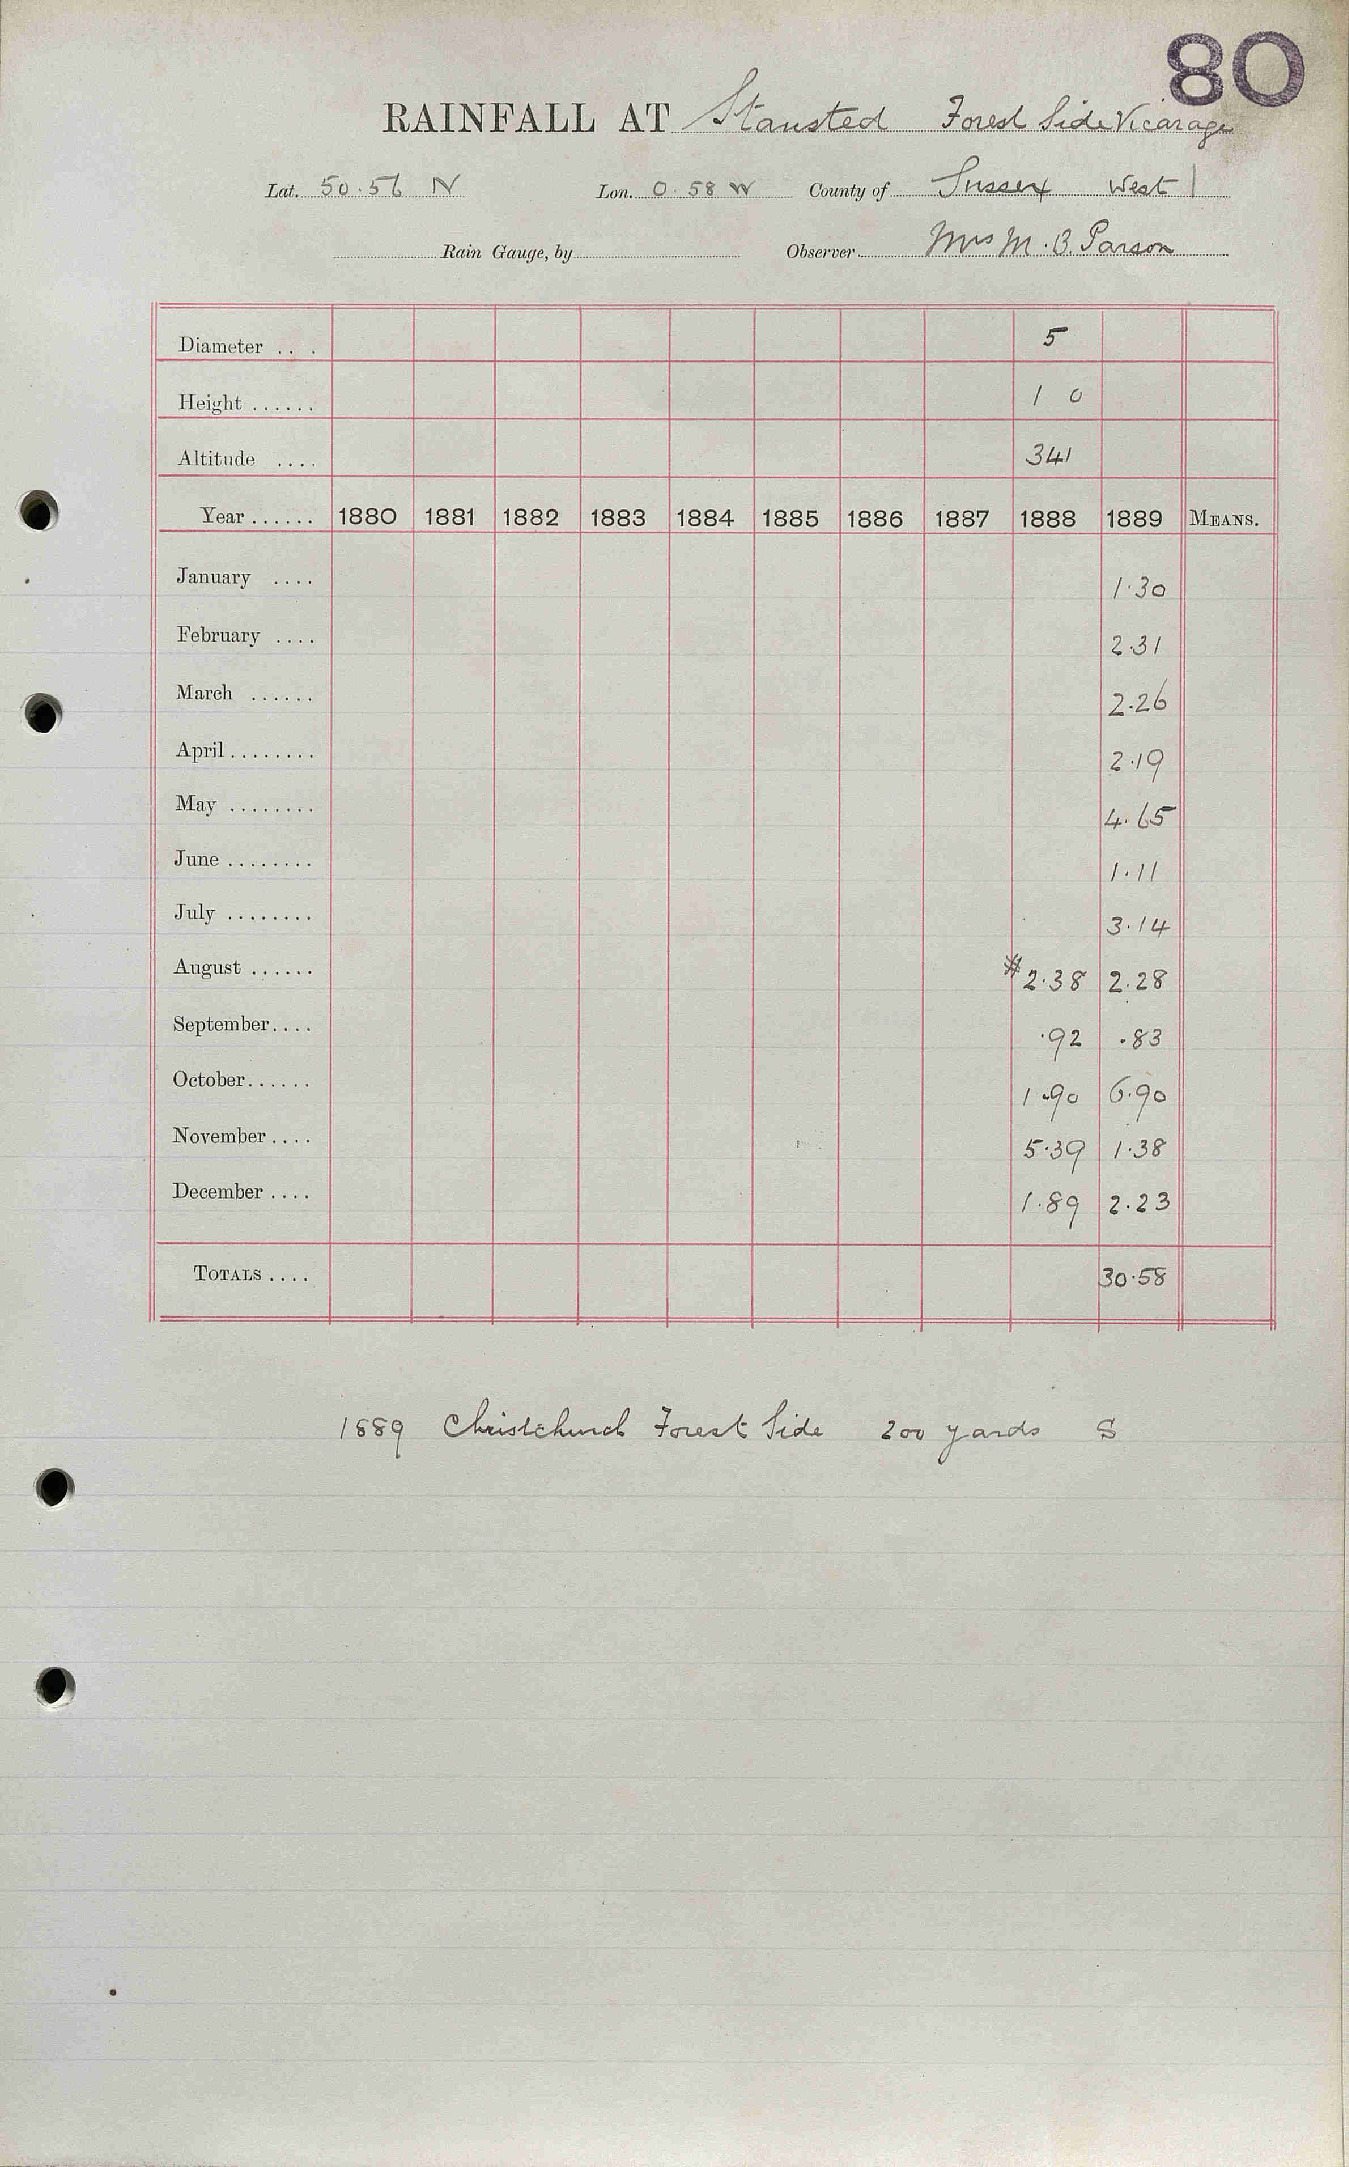 80
RAINFALL AT Stansted Forest Side Vicarage
Lat. 50.56 N Lon. 0.58 W County of Sussex West
Rain Gauge, by Observer Mrs M. B. Parson
Diameter . . . 5
Height ...... 1 0
Altitude .... 341
Year ...... 1880 1881 1882 1883 1884 1885 1886 1887 1888 1889 MEANS.
January .... 1.30
February .... 2.31
March ...... 2.26
April ........ 2.19
May ........ 4.65
June ........ 1.11
July ........ 3.14
August ...... #2.38 2.28
September.... .92 .83
October...... 1.90 6.90
November.... 5.39 1.38
December.... 1.89 2.23
TOTALS.... 30.58
1889 Christchurch Forest Side 200 yards S